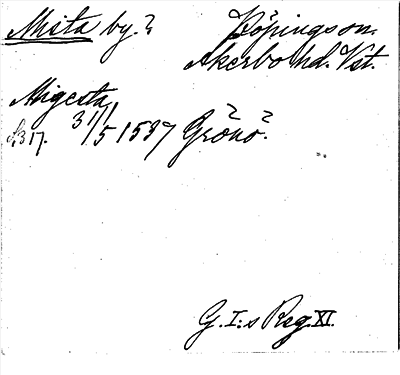 Mista by. Köpings sn.
Åkerbo hd. Vst.
Migesta
s. 317. 31/5 1537 Grönö.
G. I:s Reg. XI.